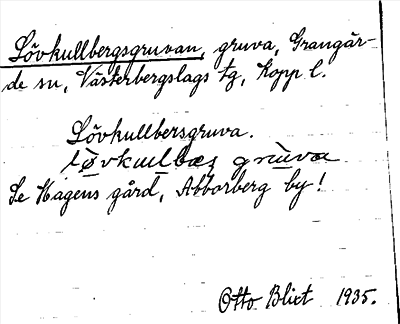 Lövkullbergsgruvan, gruva, Grangär-
de sn, Västerbergslags tg, Kopp l.
Lövkullbersgruva.
løvkulbæs gruva
Se Hagens gård, Abborberg by!
Otto Blixt 1935.